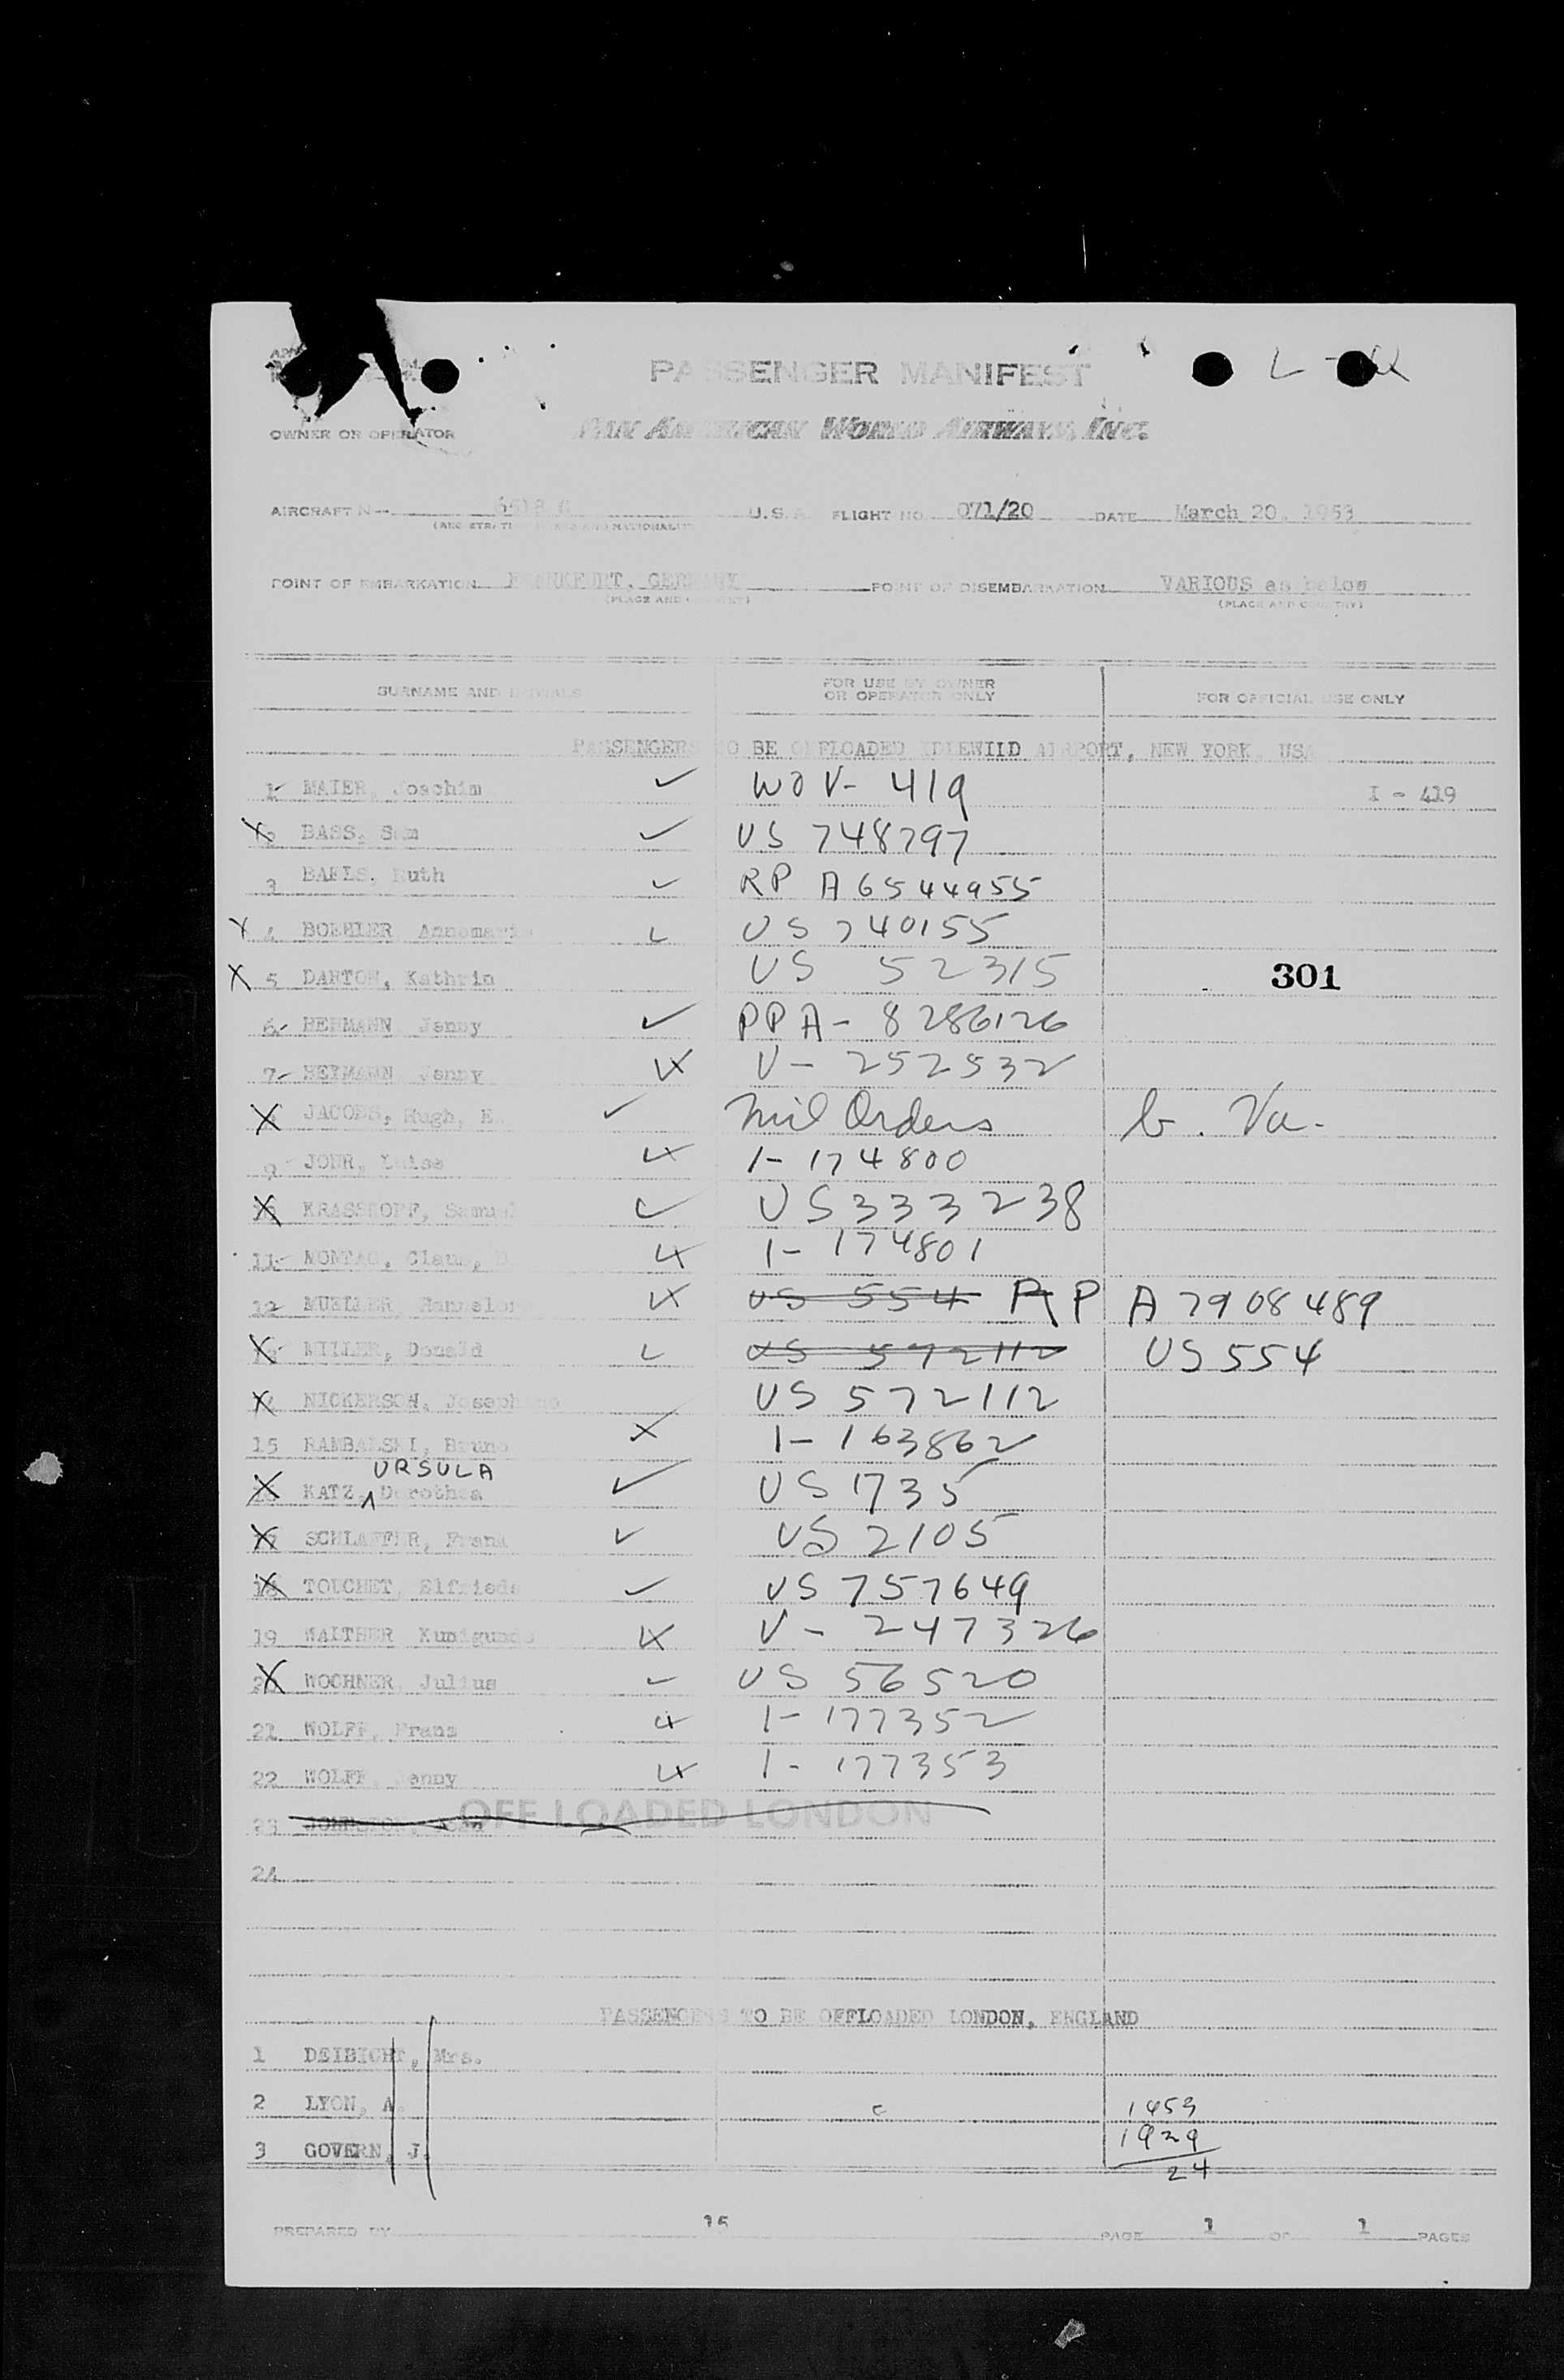 PASSENGER MANIFEST
L - Q
OWNER OR OPERATOR PAN AMERICAN WORLD AIRWAYS, INC.
AIRCRAFT N-- U.S.A. FLIGHT NO. 071/20 DATE March 20, 1953
POINT OF EMBARKATION FRANKFURT, GERMANY POINT OF DISEMBARKATION VARIOUS as below
(PLACE AND COUNTRY) (PLACE AND COUNTRY)
SURNAME AND INITIALS FOR USE BY OWNER OR OPERATOR ONLY FOR OFFICIAL USE ONLY
PASSENGERS TO BE OFFLOADED IDLEWILD AIRPORT, NEW YORK, USA
1 MAIER, Joachim WOV- 419 I - 419
2 BASS, Sam US 748797
3 Ruth RP A6544955
4 BOEHLER Annemarie US 740155
5 DARTON, Kathrin US 52315 301
6 HERMANN Jenny PPA- 8286126
7 HEYMANN Jenny V- 252532
JACOBS, Hugh, E. Mil Orders b. Va.
9 JOHR, Luise 1- 174800
KRASSNOFF, Samuel US 333238
11 MONTAG, Claus, 1- 174801
12 MUELLER, Hannelore US 554 RP A7908489
MILLER, Donald US 572112 US 554
NICKERSON, Josephine US 572112
15 RAMBALSKI, Bruno 1- 163862
URSULA
KATZ, Dorothea US 1735
17 SCHLAFFER, Frank US 2105
18 TOUCHET, Elfriede US 757649
19 WALTHER Kunigunde V- 247326
20 WOCHNER, Julius US 56520
21 WOLFF, Franz 1- 177352
22 WOLFF, Jenny 1- 177353
OFF LOADED LONDON
23 JOHNSTON,
24
PASSENGERS TO BE OFFLOADED LONDON, ENGLAND
1 DEIBICHT, Mrs.
2 LYON, A. 1453
3 GOVERN, J. 1929
24
PREPARED BY 15 PAGE 1 OF 1 PAGES